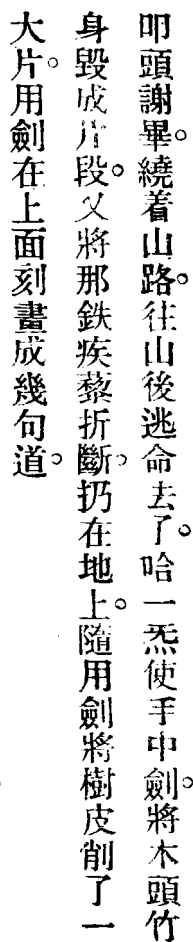 叩頭謝畢。繞着山路。往山後逃命去了。哈一炁使手中劍。將木頭竹
身毀成片段。又將那鉄疾藜折斷。扔在地上。隨用劍將樹皮削了一
大片。用劍在上面刻畫成幾句道。